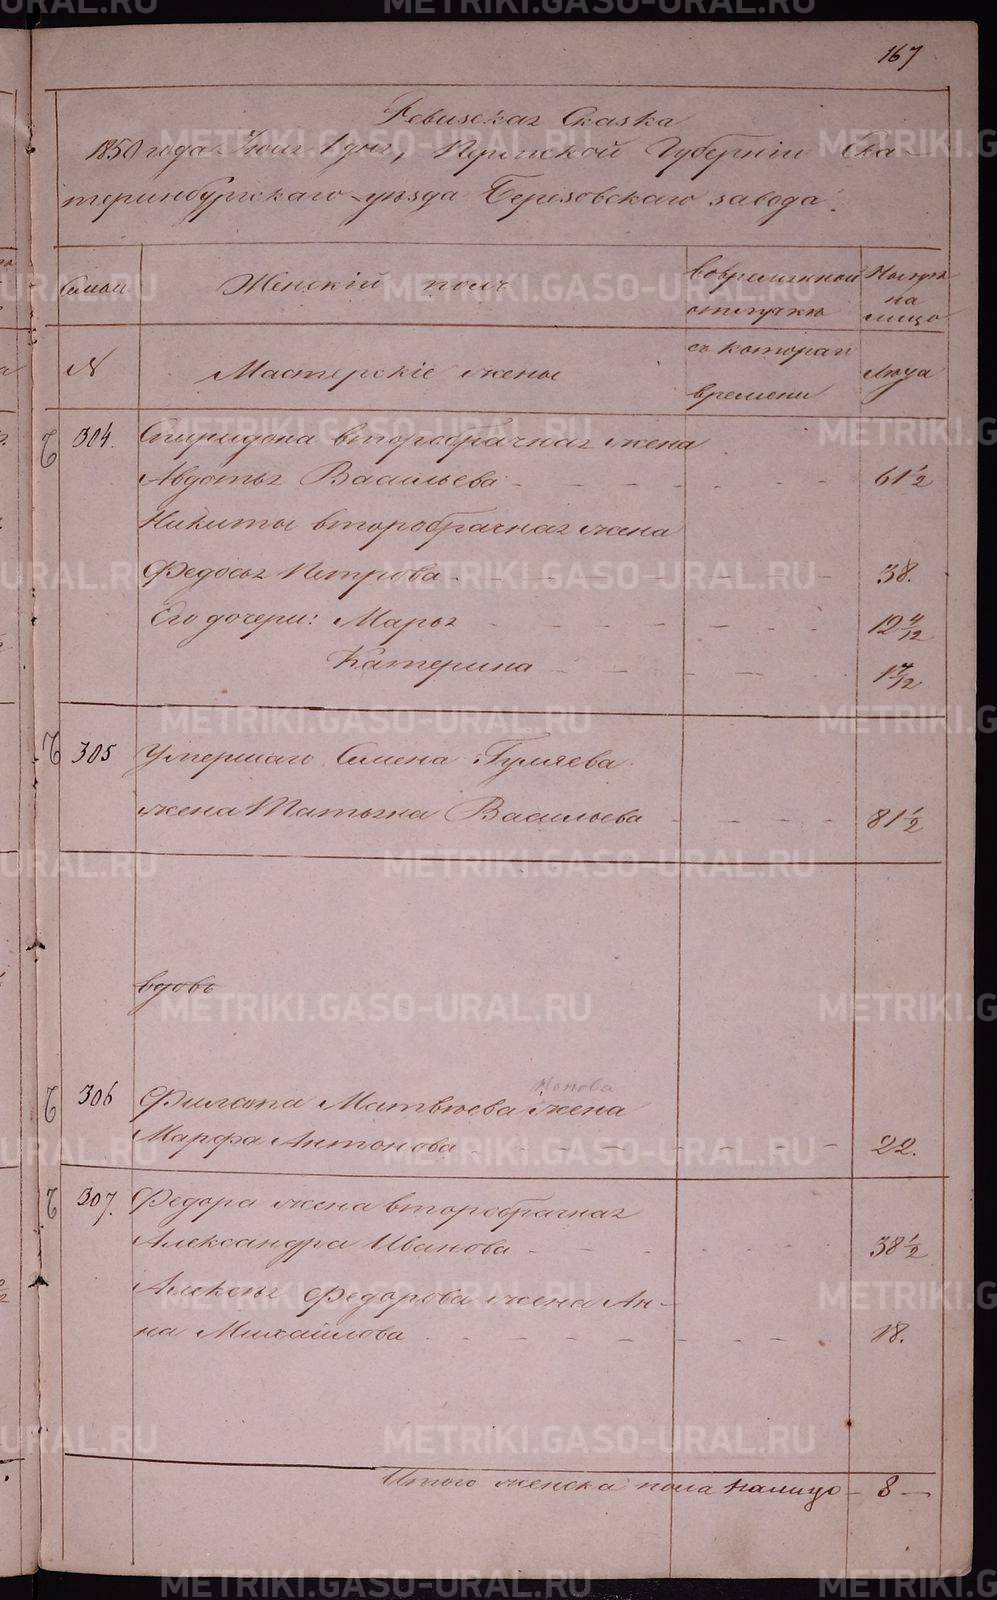 167
Ревизская Сказка
1850 года Июля 1 дня, Пермской Губернiи Ека-
теринбургскаго уѣзда Березовскаго завода.
Семьи
Женскiй полъ
Во временной отлучкѣ
Нынѣ на лицо
N
Мастерскiе жены
съ котораго времени
Лѣта
304.
Спиридона второбрачная жена
Авдотья Васильева 61 1/2
Никиты второбрачная жена
Федосья Петрова 38.
Его дочери: Марья 12 4/12
Катерина 1 7/12
305
Умершаго Семена Гуляева
жена Татьяна Васильева 81 1/2
вдовъ
306
Филата Матвѣева жена
Марфа Антонова 22.
307.
Федора жена второбрачная
Александра Иванова 38 1/2
Алексѣя Федорова жена Ан-
на Михайлова 18.
Итого женска пола налицо 8
METRIKI.GASO-URAL.RU